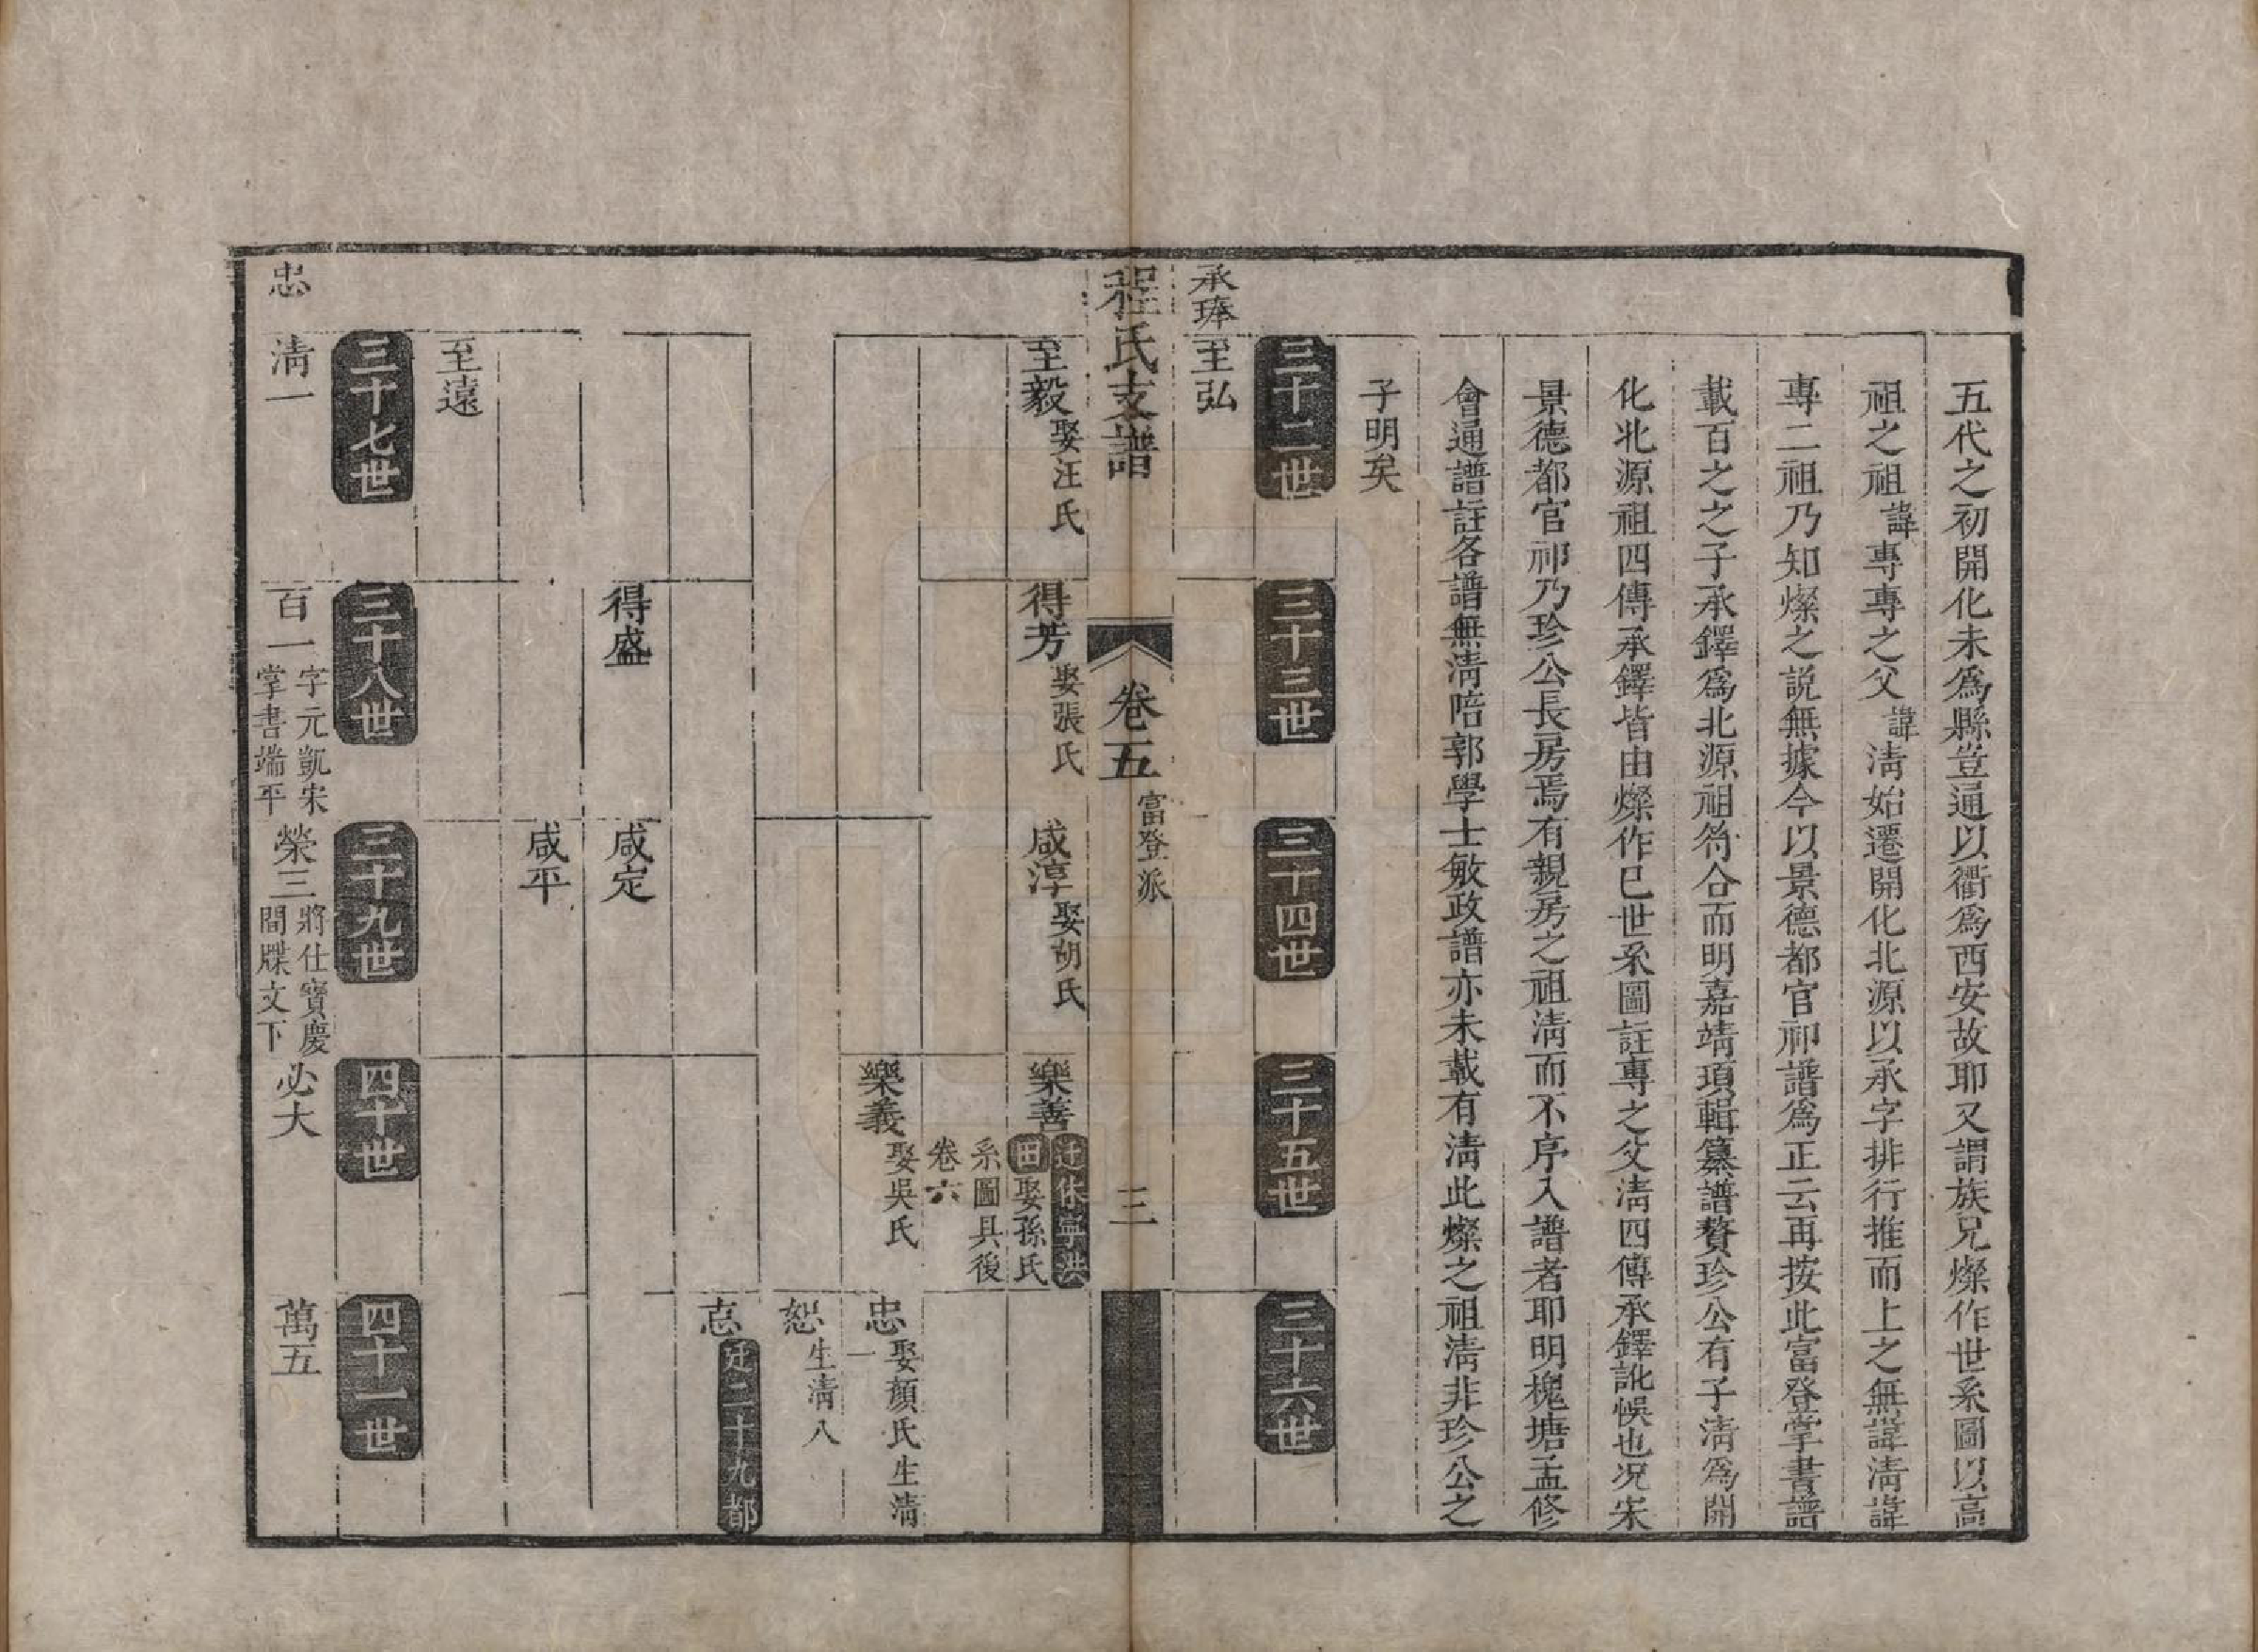 五代之初開化未為縣豈通以衢為西安故耶又謂族兄燦作世系圖以高
祖之祖諱專專之父諱淸始遷開化北源以承字排行推而上之無諱淸諱
專二祖乃知燦之說無據今以景德都官祁譜為正云再按此富登掌書譜
載百之之子承鐸為北源祖符合而明嘉靖項輯纂譜贅珍公有子淸為開
化北源祖四傳承鐸皆由燦作巳世系圖註專之父淸四傳承鐸訛悞也况宋
景德都官祁乃珍公長房焉有親房之祖淸而不序入譜者耶明槐塘孟修
會通譜註各譜無淸陪郭學士敏政譜亦未載有淸此燦之祖淸非珍公之
子明矣
三十二世
三十三世
三十四世
三十五世
三十六世
承琫
至弘
程氏支譜
卷五
富登派
三
至毅 娶汪氏
得芳 娶張氏
咸淳 娶胡氏
樂善 迁休寧洪
田 娶孫氏
系圖具後
卷六
樂義 娶吳氏
忠 娶顏氏生淸
一
恕 生淸八
志 迁二十九都
得盛
咸定
咸平
至遠
三十七世
三十八世
三十九世
四十世
四十一世
忠
淸一
百一 字元凱宋
掌書端平
榮三 將仕寶慶
間牒文下
必大
萬五